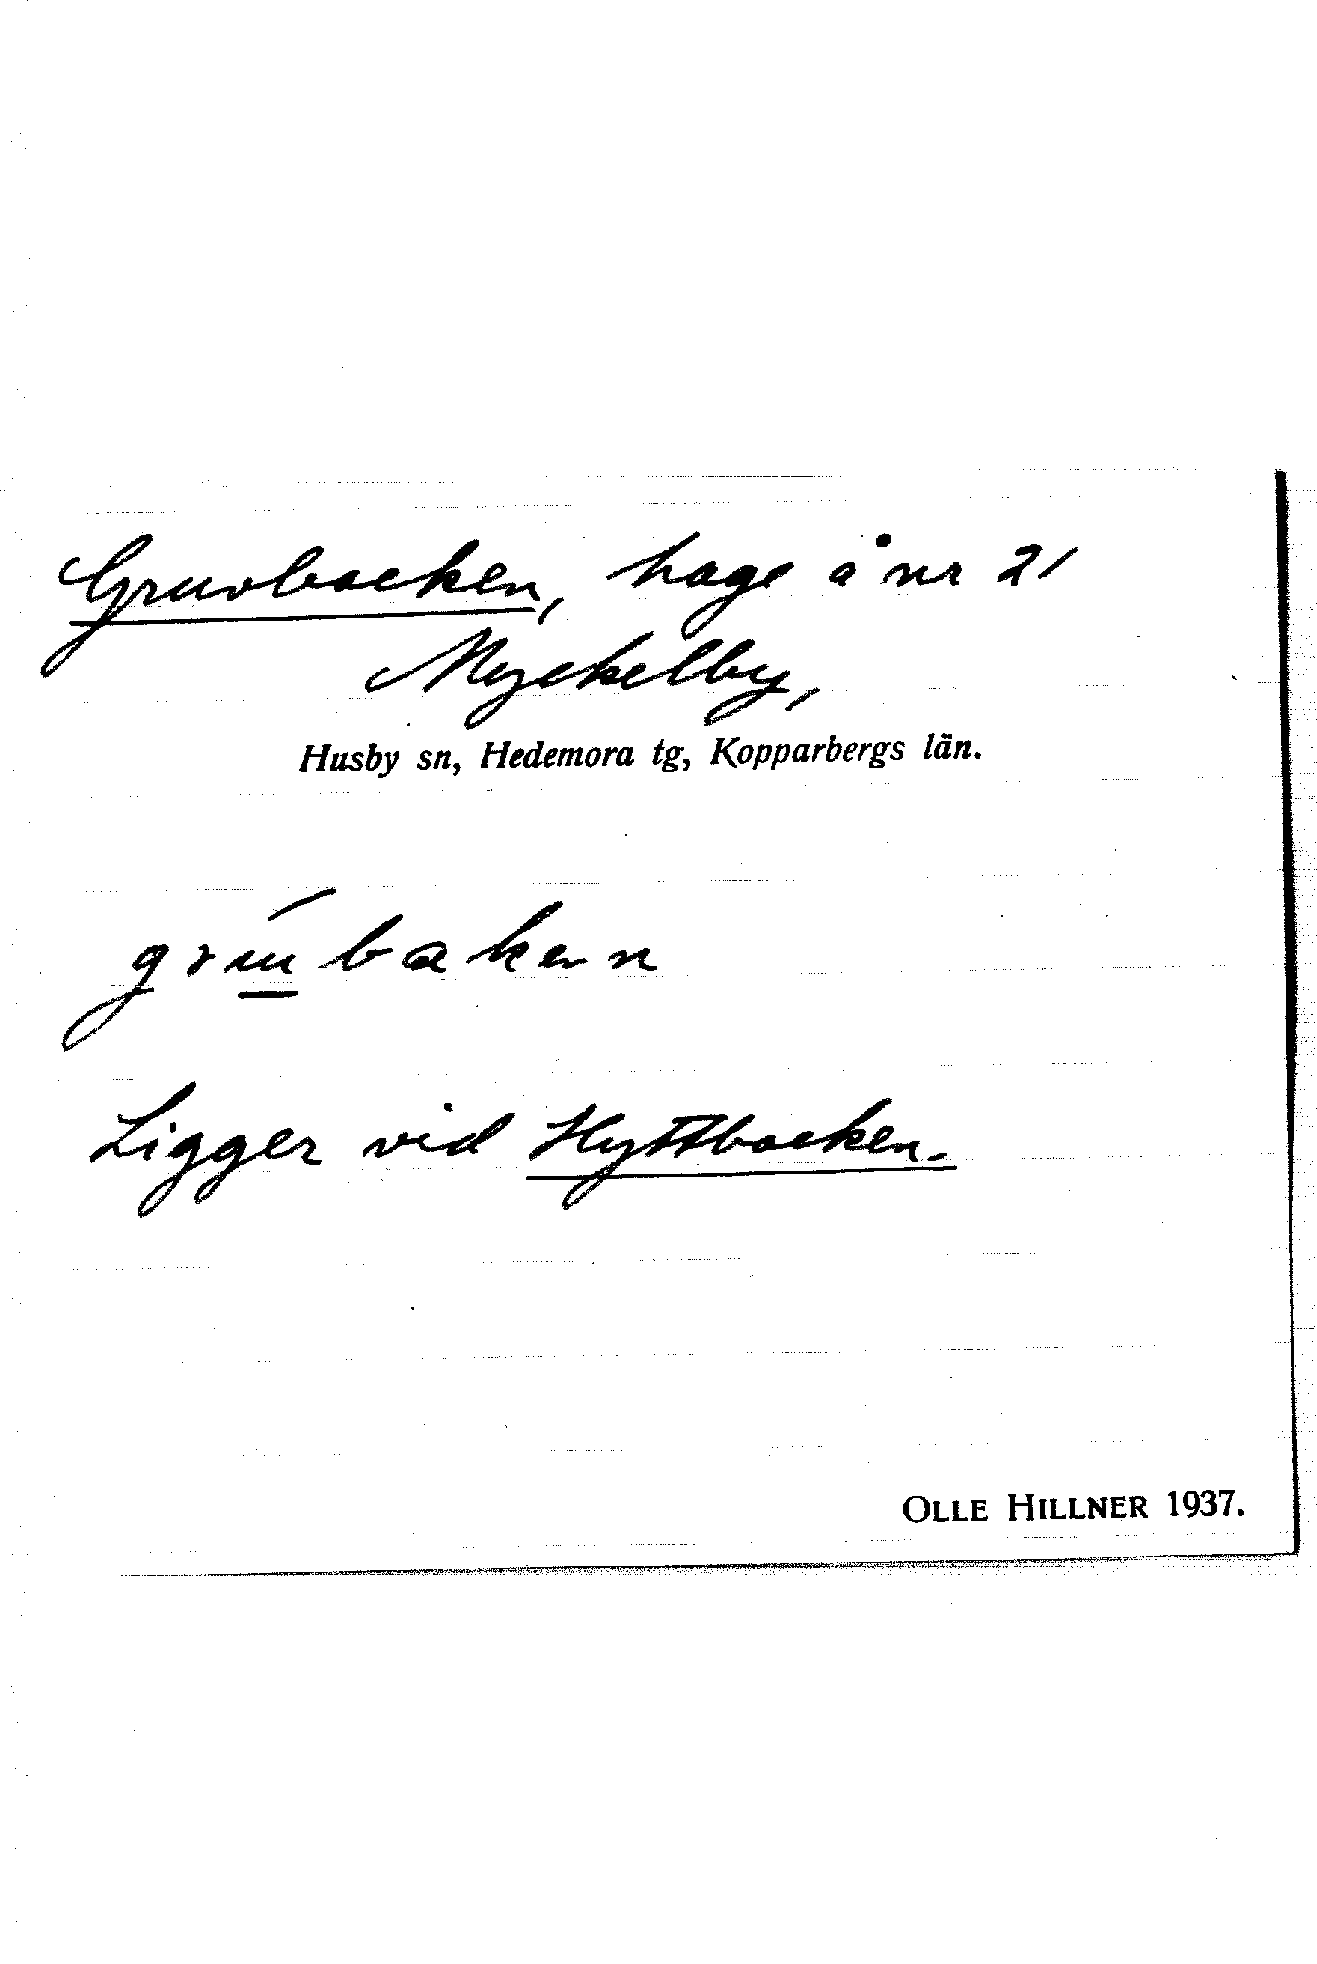 Gruvbacken, hage å nr 21
Myckelby,
Husby sn, Hedemora tg, Kopparbergs län.
grú̱bakɐn
Ligger vid Hyttbacken.
OLLE HILLNER 1937.